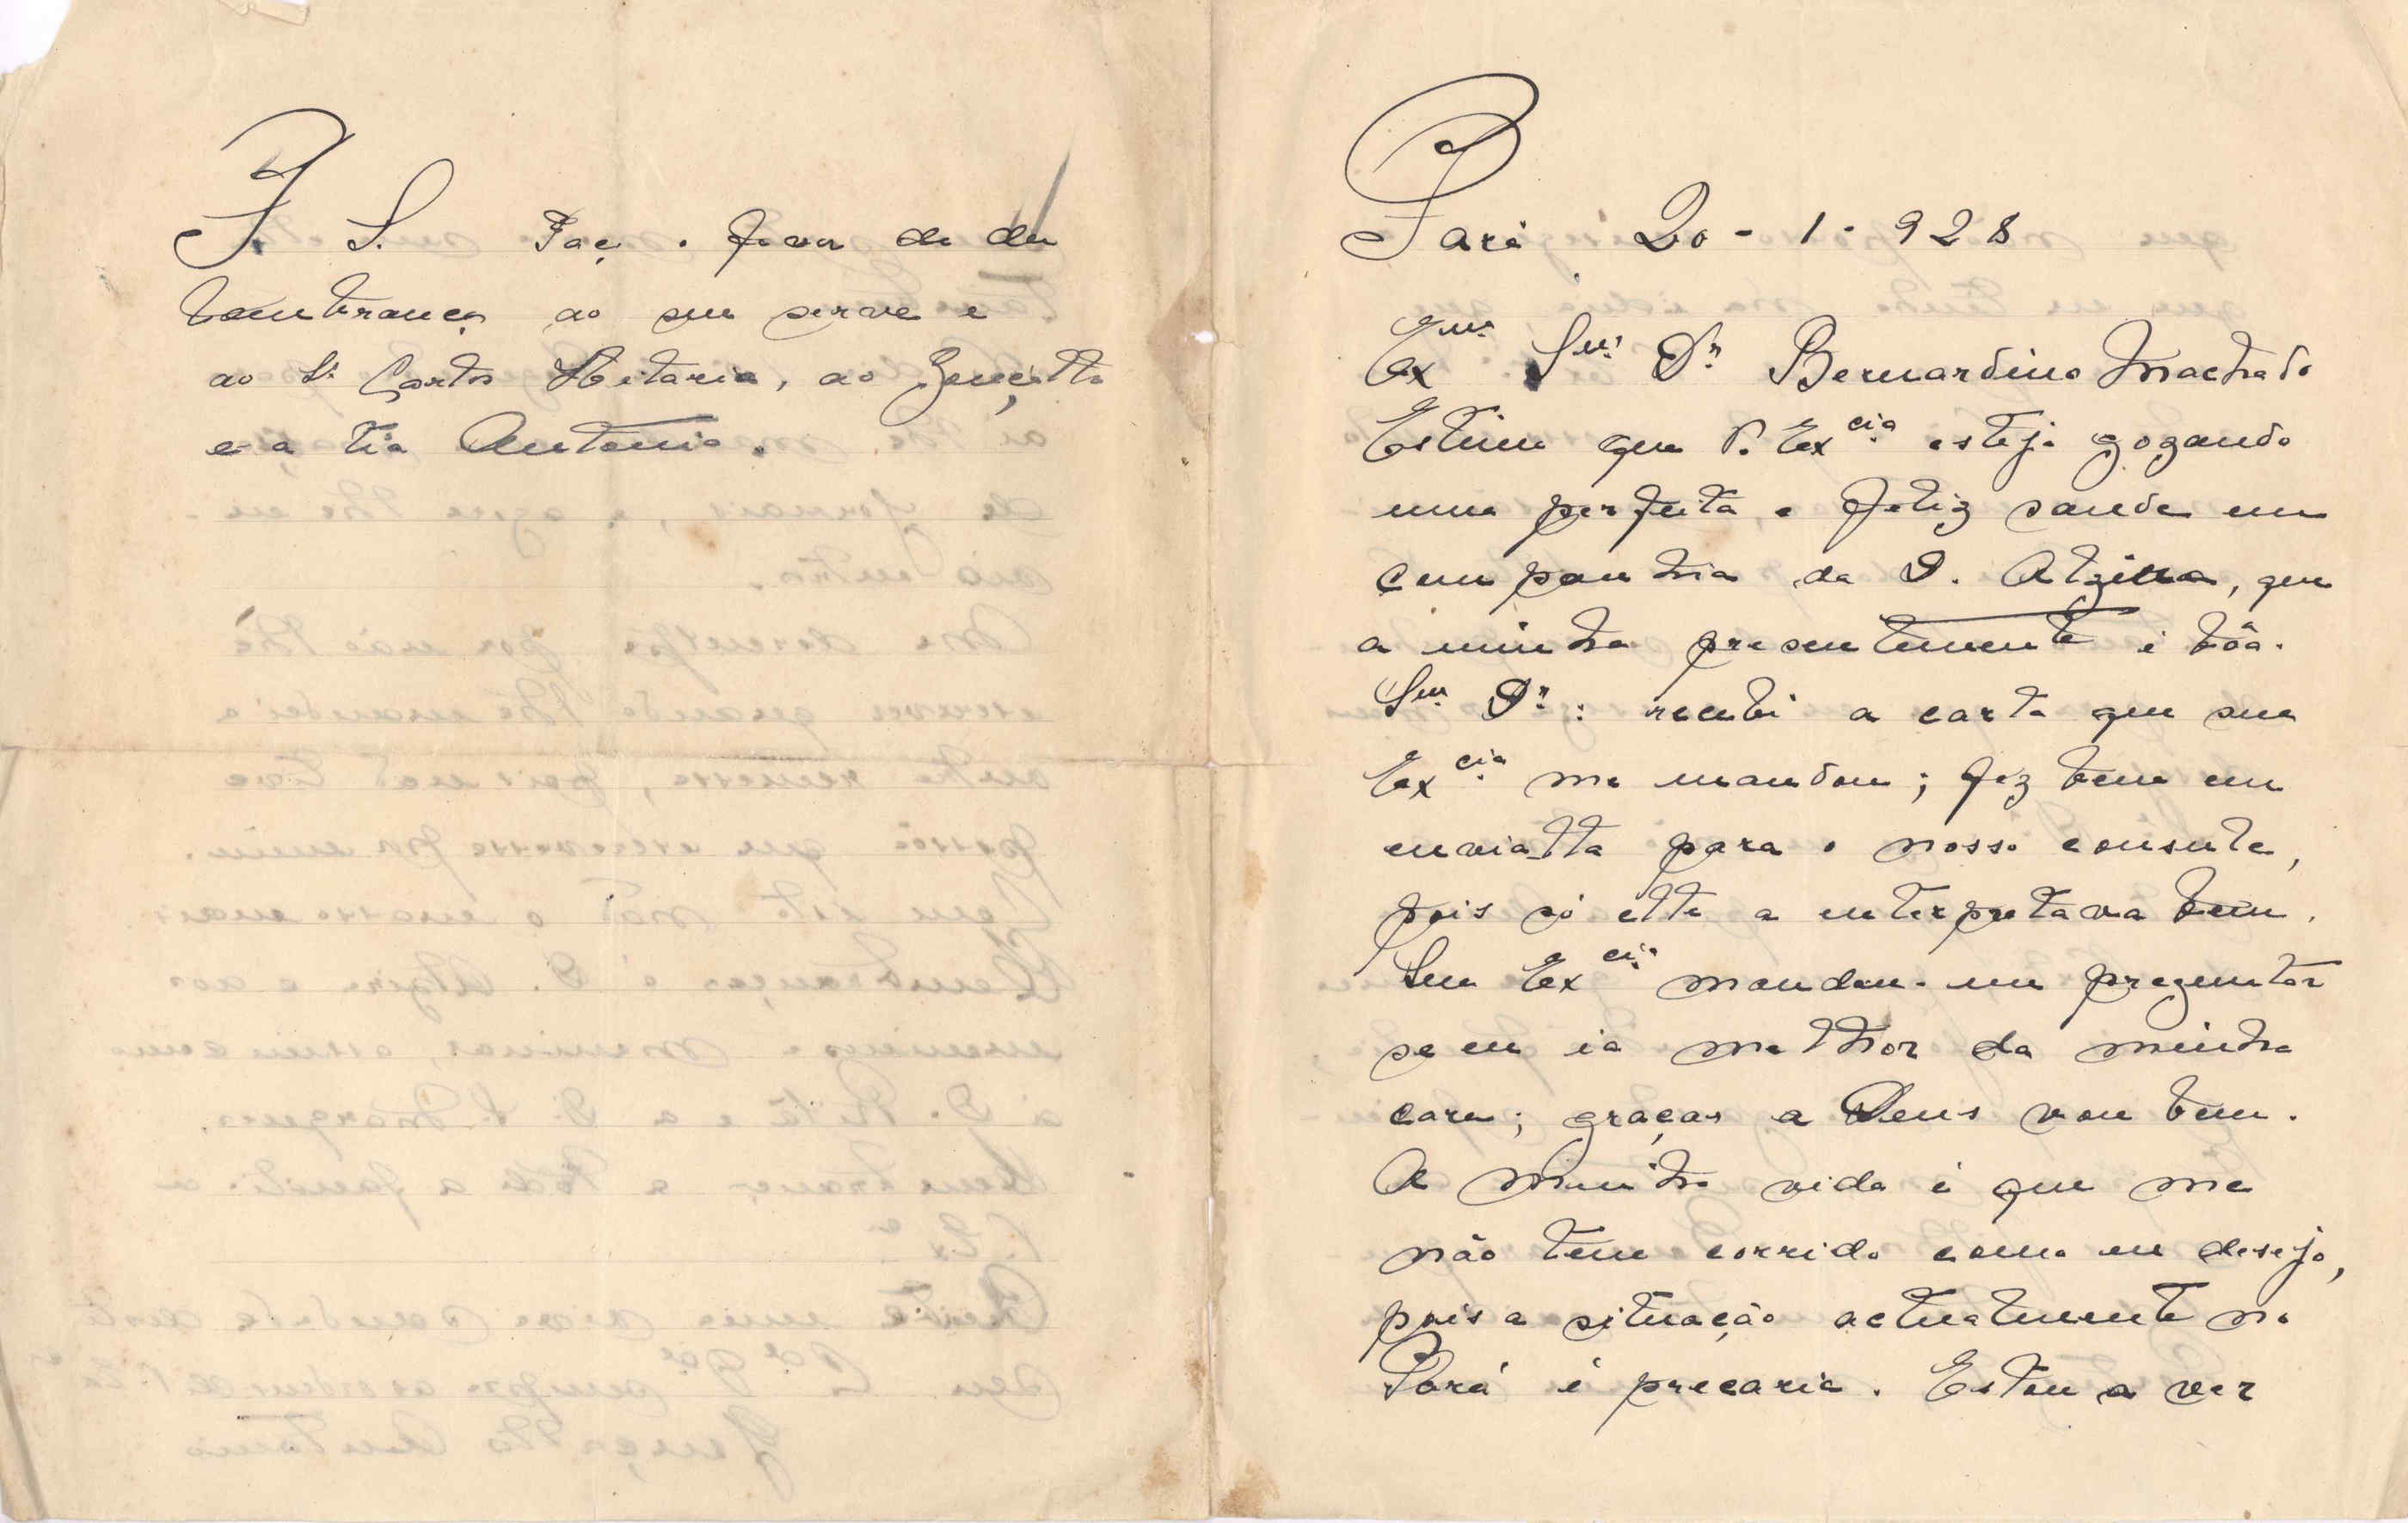 Pará 20-1-928
Exmo Snr Dr Bernardino Machado
Estimo que V. Excia esteja gozando
uma perfeita e feliz saude em
companhia da D. Alzira, que
a minha presentemente é bôa.
Snr Dr: recebi a carta que sua
Excia me mandou; fez bem em
envialla para o nosso consule,
pois só elle a enterpretava bem.
Sua Excia mandou-me preguntar
se eu ia melhor da minha
cara; graças a Deus vou bem.
A minha vida é que me
não tem corrido como eu desejo,
pois a situação actualmente no
Pará é precaria. Estou a ver
P. S. Faço favor de dar
lembranças ao seu servo e
ao Sr Carlos Hilario, ao
e a tia Antonia.